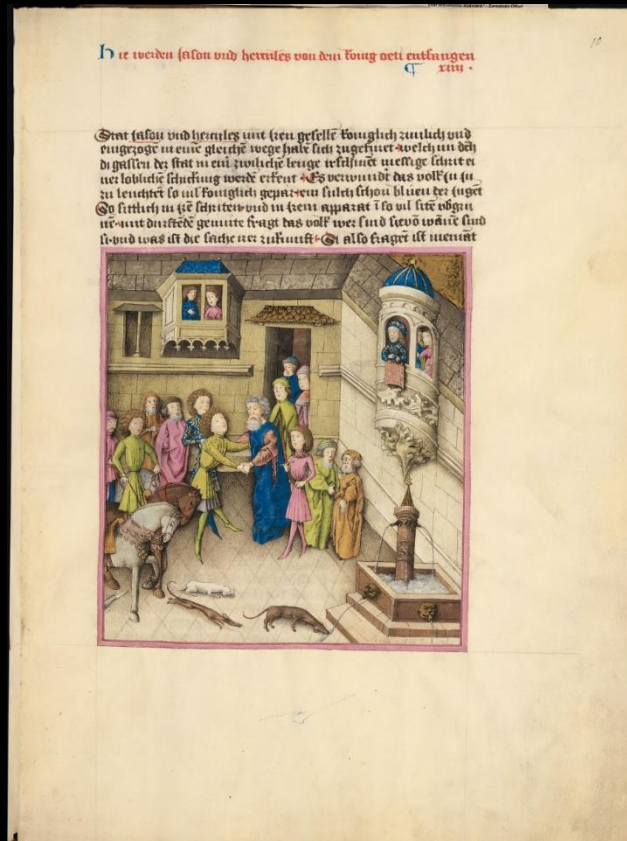 10
Hie werden jason vnd hercules von dem konig oeti entfangen
¶ xiiii ·
Stat jason vnd hercules mit iren geselle koniglich zuilich vnd
eingezoge in eine gleiche wege habe sich zugefuret welch in dē
di gassen der stat in ein zwilicher lenge irschinēt messige schrit ei
ner loblichē schickung werdē erkent Es verwundt das volk in in
zu leuchtet so vil koniglich gepar ein sulch schon bluen der jugēt
So sittlich in irē schriten vnd in irem apparat ī so vil sitē
mit gemute fragt das volk wer sind si sind
si vnd was ist die sache irer zukunft Si also fraget ist niemāt